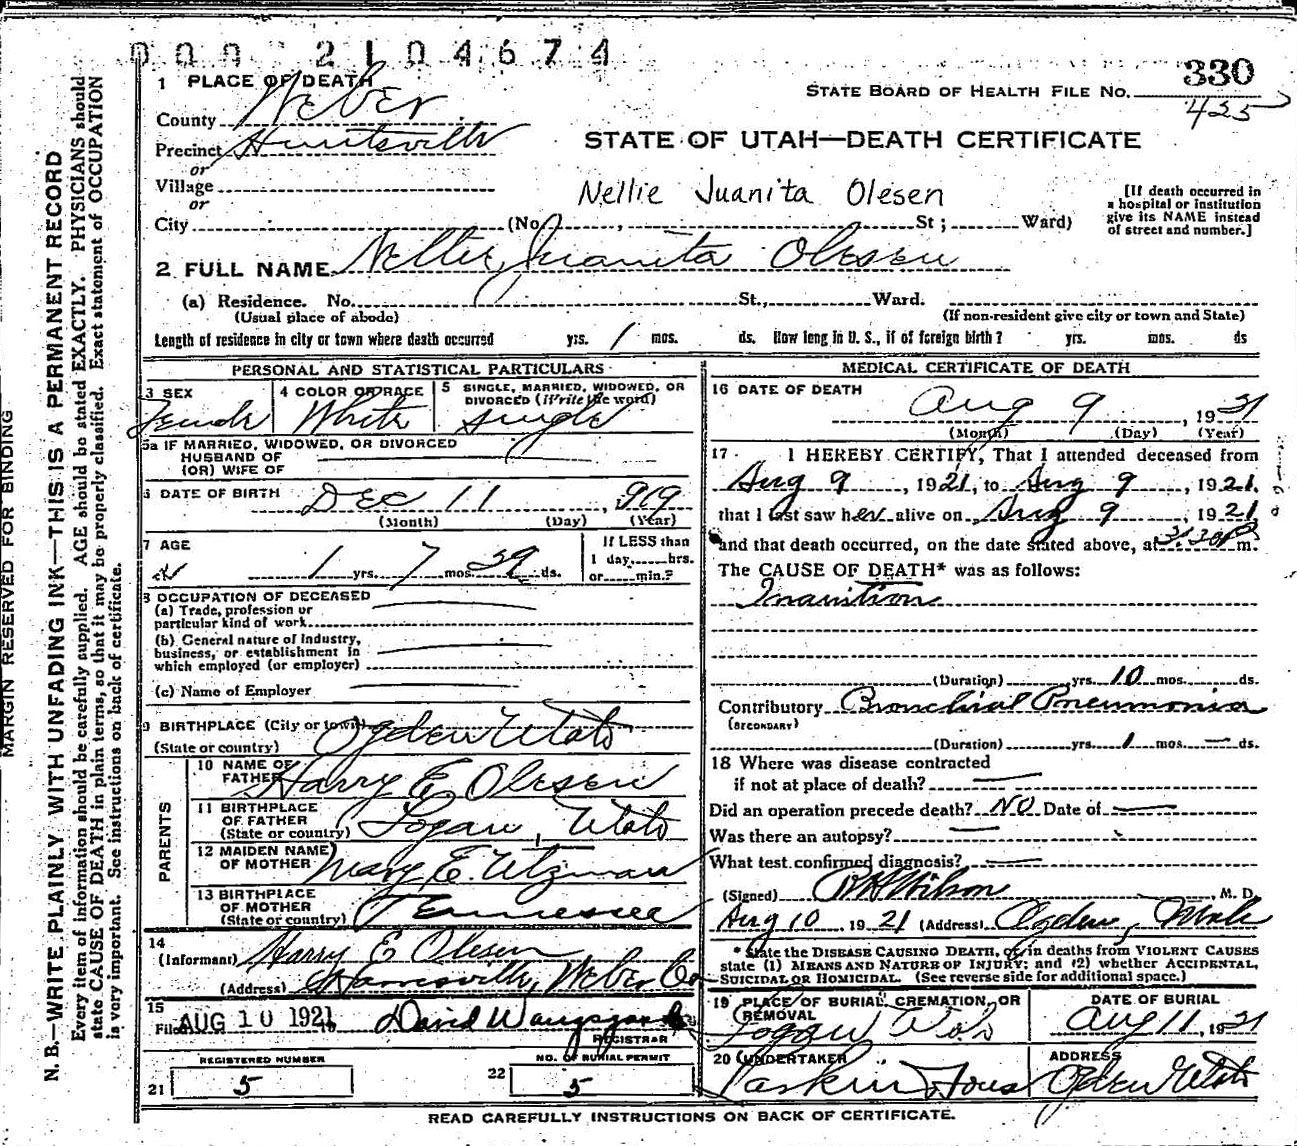 000 2104674
330
STATE BOARD OF HEALTH FILE NO.
425
1 PLACE OF DEATH
County Weber
STATE OF UTAH—DEATH CERTIFICATE
Precinct Huntsville
or
Village
or
Nellie Juanita Olesen
[If death occurred in a hospital or institution give its NAME instead of street and number.]
City (No. , St ; Ward)
2 FULL NAME Nellie Juanita Olesen
(a) Residence. No. St., Ward.
(Usual place of abode)
(If non-resident give city or town and State)
Length of residence in city or town where death occurred yrs. 1 mos. ds. How long in U. S., if of foreign birth? yrs. mos. ds
PERSONAL AND STATISTICAL PARTICULARS
3 SEX Female
4 COLOR OR RACE White
5 SINGLE, MARRIED, WIDOWED, OR DIVORCED (Write the word) Single
5a IF MARRIED, WIDOWED, OR DIVORCED
HUSBAND OF
(OR) WIFE OF
6 DATE OF BIRTH Dec 11, 919
(Month) (Day) (Year)
7 AGE
1 yrs. 7 mos. 29 ds.
If LESS than
1 day, hrs.
or min.?
8 OCCUPATION OF DECEASED
(a) Trade, profession or
particular kind of work
(b) General nature of industry,
business, or establishment in
which employed (or employer)
(c) Name of Employer
9 BIRTHPLACE (City or town) Ogden Utah
(State or country)
PARENTS
10 NAME OF FATHER Harry E Olesen
11 BIRTHPLACE OF FATHER (State or country) Logan, Utah
12 MAIDEN NAME OF MOTHER Mary E. Utzman
13 BIRTHPLACE OF MOTHER (State or country) Tennessee
14
(Informant) Harry E Olesen
(Address) Huntsville, Weber Co
15
Filed AUG 10 1921 David
REGISTRAR
REGISTERED NUMBER
21 5
NO. OF BURIAL PERMIT
22 5
MEDICAL CERTIFICATE OF DEATH
16 DATE OF DEATH
Aug 9, 1921
(Month) (Day) (Year)
17 I HEREBY CERTIFY, That I attended deceased from
Aug 9, 1921, to Aug 9, 1921,
that I last saw her alive on Aug 9, 1921
and that death occurred, on the date stated above, at 3:30 P m.
The CAUSE OF DEATH* was as follows:
Inanition
(Duration) yrs. 10 mos. ds.
Contributory Bronchial Pneumonia
(SECONDARY)
(Duration) yrs. 1 mos. — ds.
18 Where was disease contracted
if not at place of death?
Did an operation precede death? No Date of
Was there an autopsy?
What test confirmed diagnosis?
(Signed) Wilson M. D.
Aug 10 1921 (Address) Ogden, Utah
* State the DISEASE CAUSING DEATH, or in deaths from VIOLENT CAUSES
state (1) MEANS AND NATURE OF INJURY; and (2) whether ACCIDENTAL,
SUICIDAL OR HOMICIDAL. (See reverse side for additional space.)
19 PLACE OF BURIAL, CREMATION, OR REMOVAL
Logan Utah
DATE OF BURIAL
Aug 11, 1921
20 UNDERTAKER
Larkin & Sons
ADDRESS
Ogden Utah
READ CAREFULLY INSTRUCTIONS ON BACK OF CERTIFICATE.
MARGIN RESERVED FOR BINDING
N. B.—WRITE PLAINLY WITH UNFADING INK—THIS IS A PERMANENT RECORD
Every item of information should be carefully supplied. AGE should be stated EXACTLY. PHYSICIANS should
state CAUSE OF DEATH in plain terms, so that it may be properly classified. Exact statement of OCCUPATION
is very important. See instructions on back of certificate.